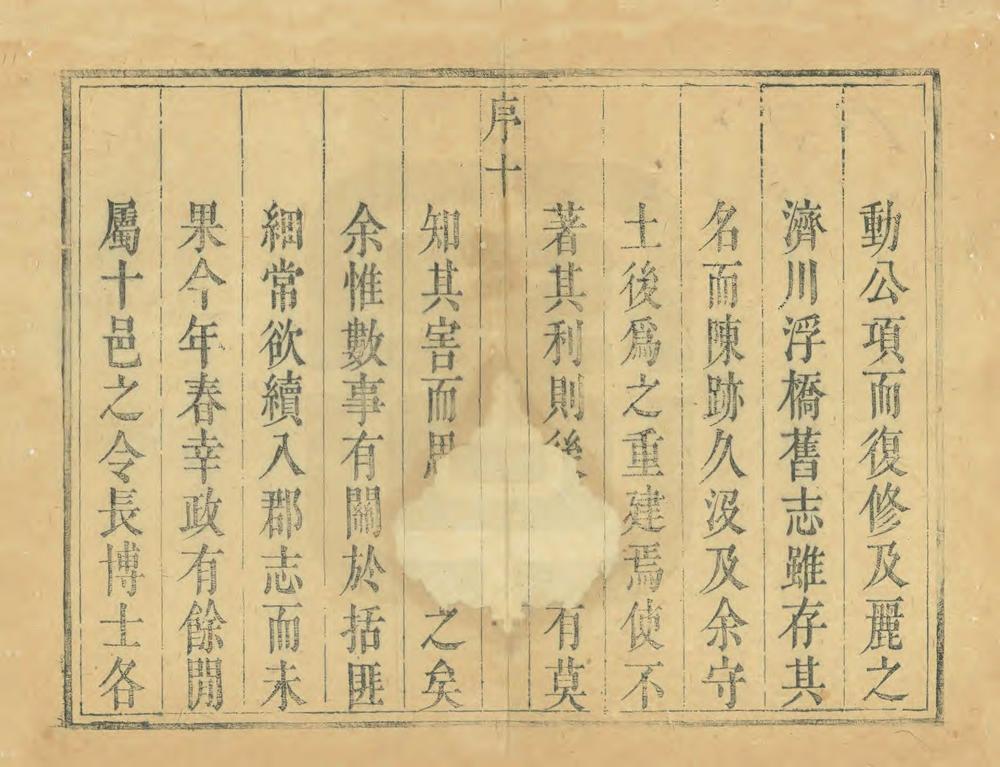 動公項而復修及麗之
濟川浮橋舊志雖存其
名而陳跡久沒及余守
土後爲之重建焉使不
著其利則後有莫
序十
知其害而思之矣
余惟數事有關於括匪
細常欲續入郡志而未
果今年春幸政有餘閒
屬十邑之令長博士各